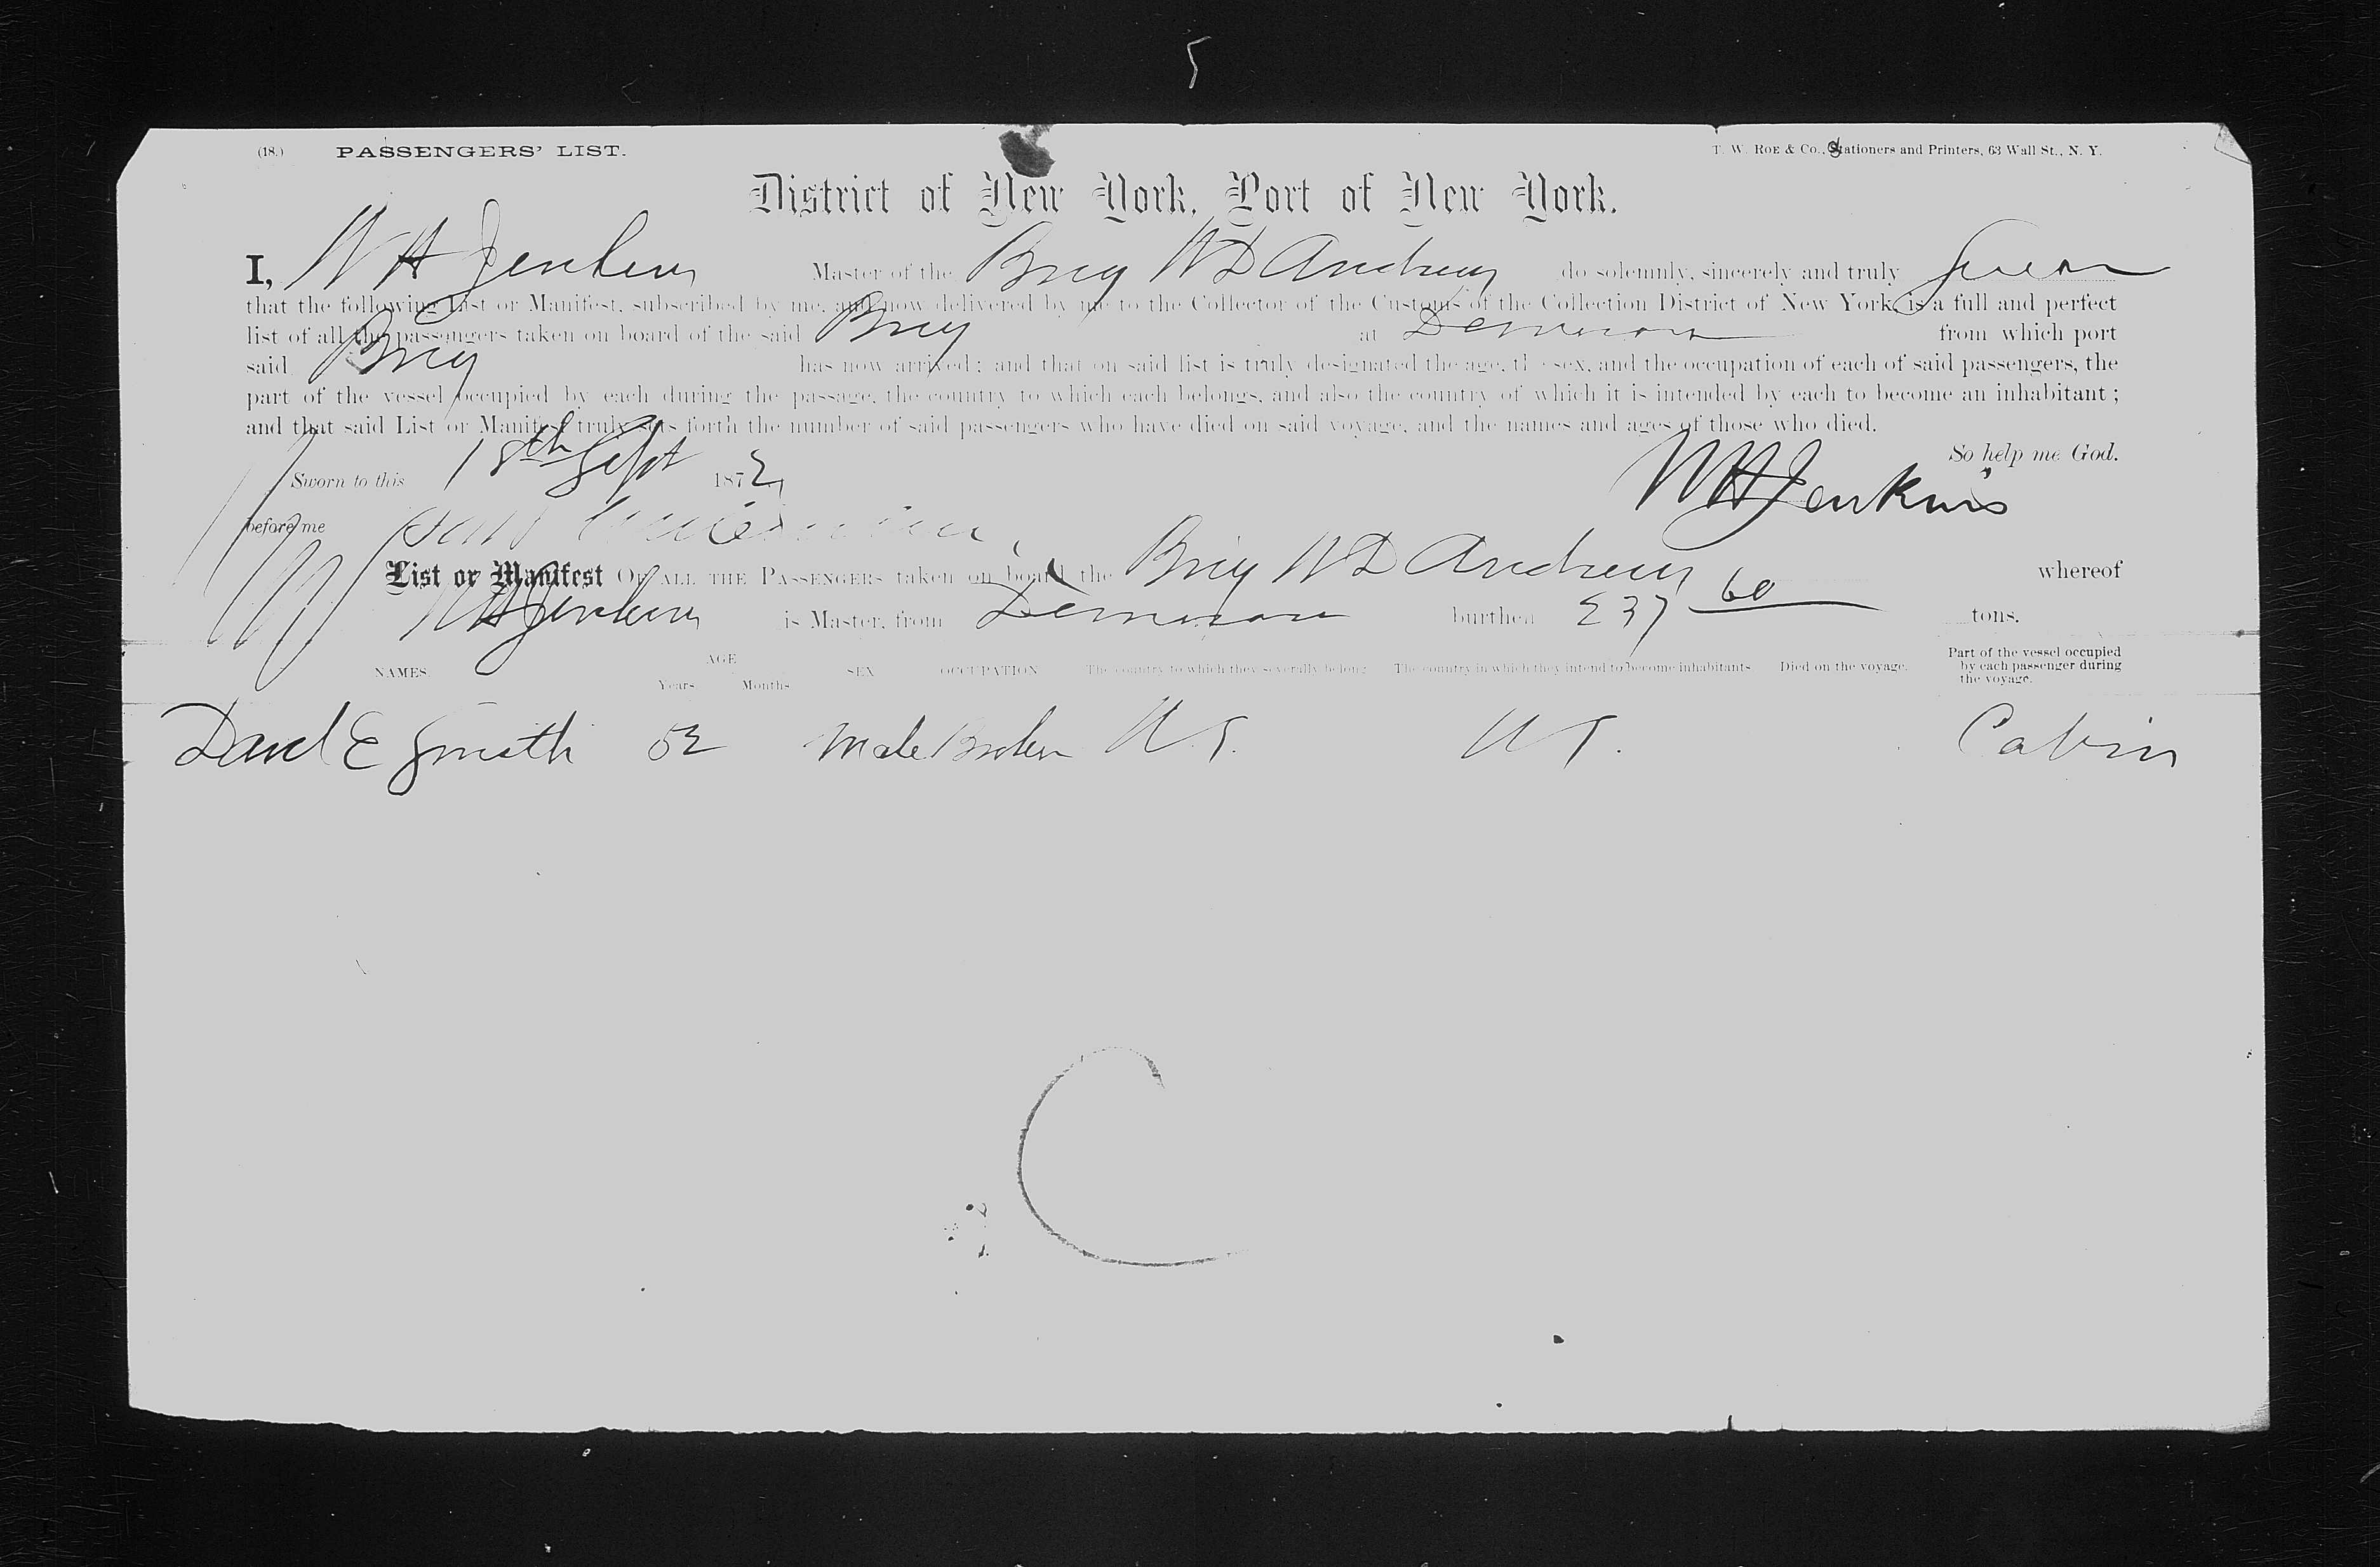 5
(18.) PASSENGERS' LIST. T. W. ROE & Co., Stationers and Printers, 63 Wall St., N. Y.
District of New York, Port of New York.
I, W H Jenkins Master of the Brig W D Andrews do solemnly, sincerely and truly swear
that the following List or Manifest, subscribed by me, and now delivered by me to the Collector of the Customs of the Collection District of New York, is a full and perfect
list of all the passengers taken on board of the said Brig at Demerara from which port
said Brig has now arrived; and that on said list is truly designated the age, the sex, and the occupation of each of said passengers, the
part of the vessel occupied by each during the passage, the country to which each belongs, and also the country of which it is intended by each to become an inhabitant;
and that said List or Manifest truly sets forth the number of said passengers who have died on said voyage, and the names and ages of those who died.
So help me God.
Sworn to this 18th Sept 1872
W H Jenkins
before me
List or Manifest OF ALL THE PASSENGERS taken on board the Brig W D Andrews whereof
W H Jenkins is Master, from Demerara burthen 237 60 tons.
NAMES AGE Years Months SEX OCCUPATION The country to which they severally belong The country in which they intend to become inhabitants Died on the voyage. Part of the vessel occupied by each passenger during the voyage.
David E Smith 52 Male Broker U S. U S. Cabin
C